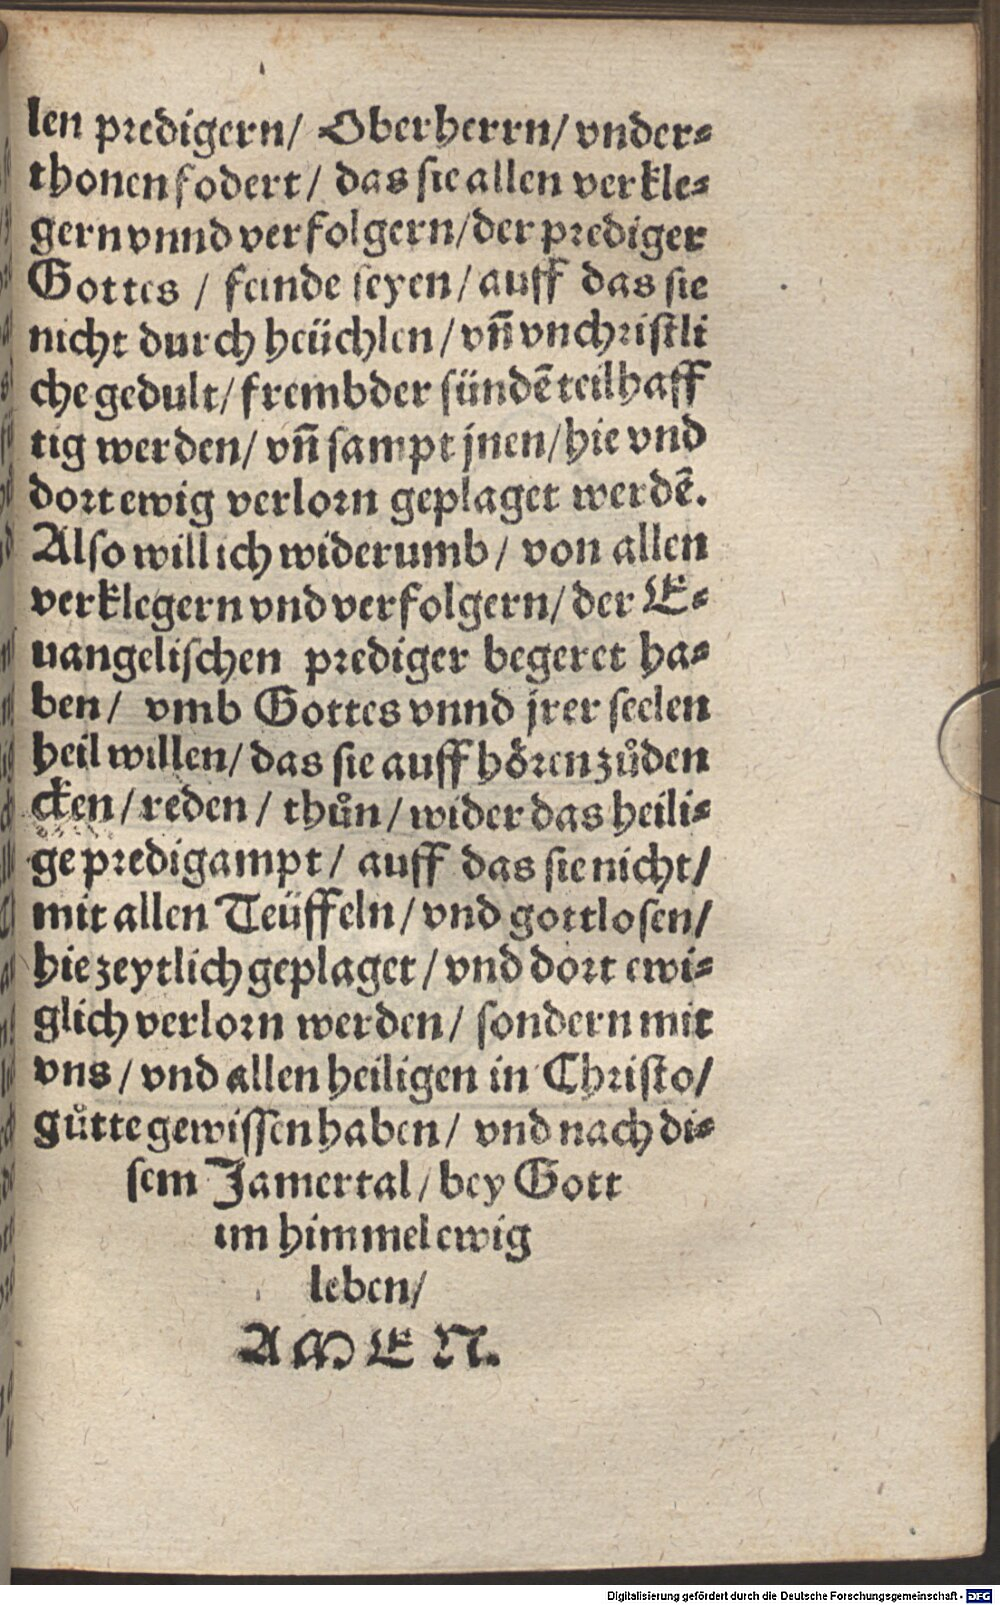 len predigern/ Oberherrn/ vnder⸗
thonen fodert/ das sie allen verkle⸗
gern vnnd verfolgern/ der prediger
Gottes / feinde seyen/ auff das sie
nicht durch heüchlen/ vñ vnchristli
che gedult/ frembder sündẽ teilhaff
tig werden/ vñ sampt jnen/ hie vnd
dort ewig verlorn geplaget werdẽ.
Also will ich widerumb/ von allen
verklegern vnd verfolgern/ der E⸗
uangelischen prediger begeret ha⸗
ben/ vmb Gottes vnnd jrer seelen
heil willen/ das sie auff hören zůden
cken/ reden / thůn/ wider das heili⸗
ge predigampt/ auff das sie nicht/
mit allen Teüffeln/ vnd gottlosen/
hie zeytlich geplaget/ vnd dort ewi⸗
glich verlorn werden/ sondern mit
vns/ vnd allen heiligen in Christo/
gůtte gewissen haben/ vnd nach di⸗
sem Jamertal/ bey Gott
im himmel ewig
leben/
AMEN.
Digitalisierung gefördert durch die Deutsche Forschungsgemeinschaft - DFG